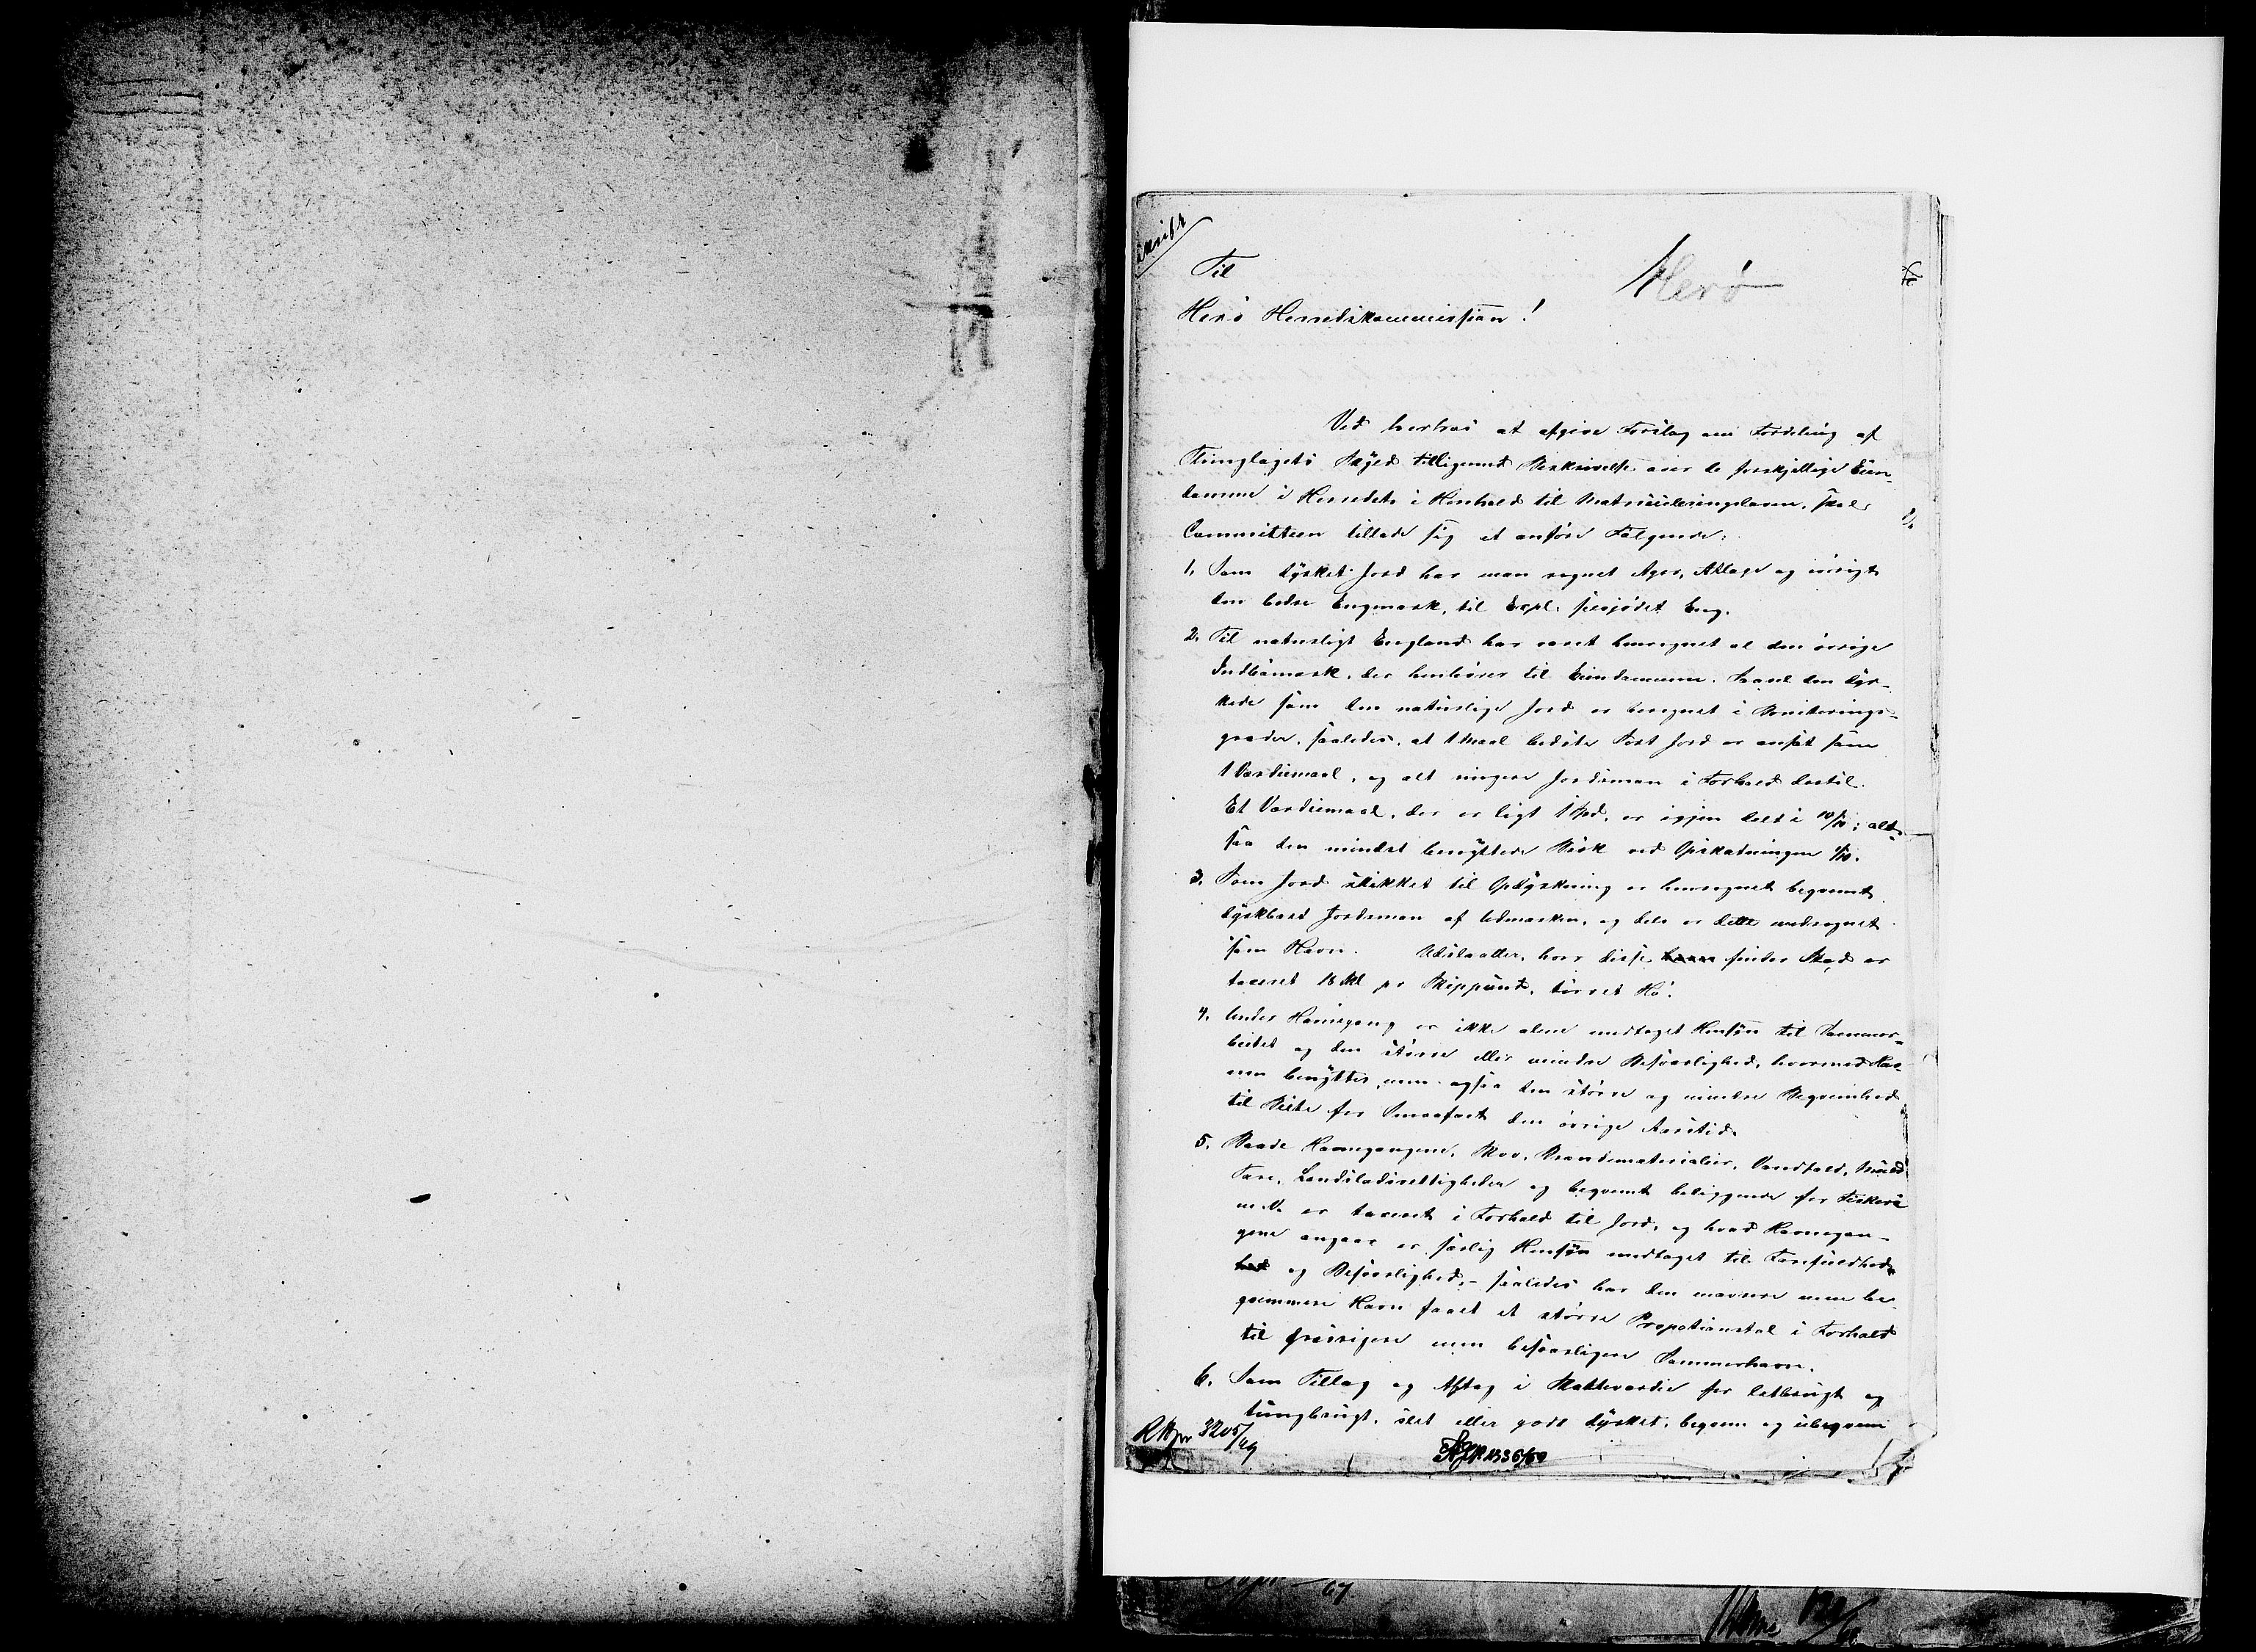 Afskrift
Til
Herö
Herö Herredskommission!
Ved herhos at afgive Forslag om Fordeling af
Thinglagets Skyld tilligemed Beskrivelse over de forskjellige Eien-
domme i Herredet i Henhold til Matriculeringsloven, skal
Committeen tillade sig at anføre Følgende:
1. Som dyrket Jord har man regnet Ager, Atlage og øvrigt
den bedre Engmark, til Expl. forgjödet Eng.
2. Til naturligt England har været henregnet al den övrige
Indböмark, der henhörer til Eiendommene. Saavel den dyr-
kede som den naturlige Jord er beregnet i Boniterings-
grader, saaledes, at 1 Maal bedste Sort Jord er ansat som
1 Værdiemaal, og alt ringere Jordsmon i Forhold dertil.
Et Værdiemaal, der er ligt 1 Spd, er igjen delt i 10/10; alt-
saa den mindst benyttede Brök ved Opskatningen 1/10.
3. Som Jord skikket til Opdyrkning er henregnet begvemt
dyrkbart Jordsmon af Udmarken, og dels er dette medregnet
som Havn. Udslaatter, hvor disse finder Sted er
taxeret 18 pr Skippund, törret Hö.
4. Under Havnegang er ikke alene medtaget Hensyn til Sommer-
beitet og den större eller mindre Besværlighed, hvormed Hav-
nen benyttes, men ogsaa den större og mindre Begvemhed
til Beite for Smaafæet den övrige Aarstid.
5. Baade Havnegangene, Skov, Brændematerialier, Vandfald,
Tare, Landslodsrettigheder og begvemt beliggende for Fiskerie
m.v. er taxeret i Forhold til Jord, og hvad Havnegan-
gene angaar er særlig Hensyn medtaget til Farefuldhed
og Besværlighed, - saaledes har den mavrere men be-
gvemmere Havn faaet et större Propotionstal i Forhold
til græsrigere men besværligere Sommerhavn.
6. Som Tillag og Aftag i Skatteværdie for letbrugt og
tungbrugt, slet eller godt dyrket, begvem og ubegvem
RKpr 3205/49
1336/60
67.